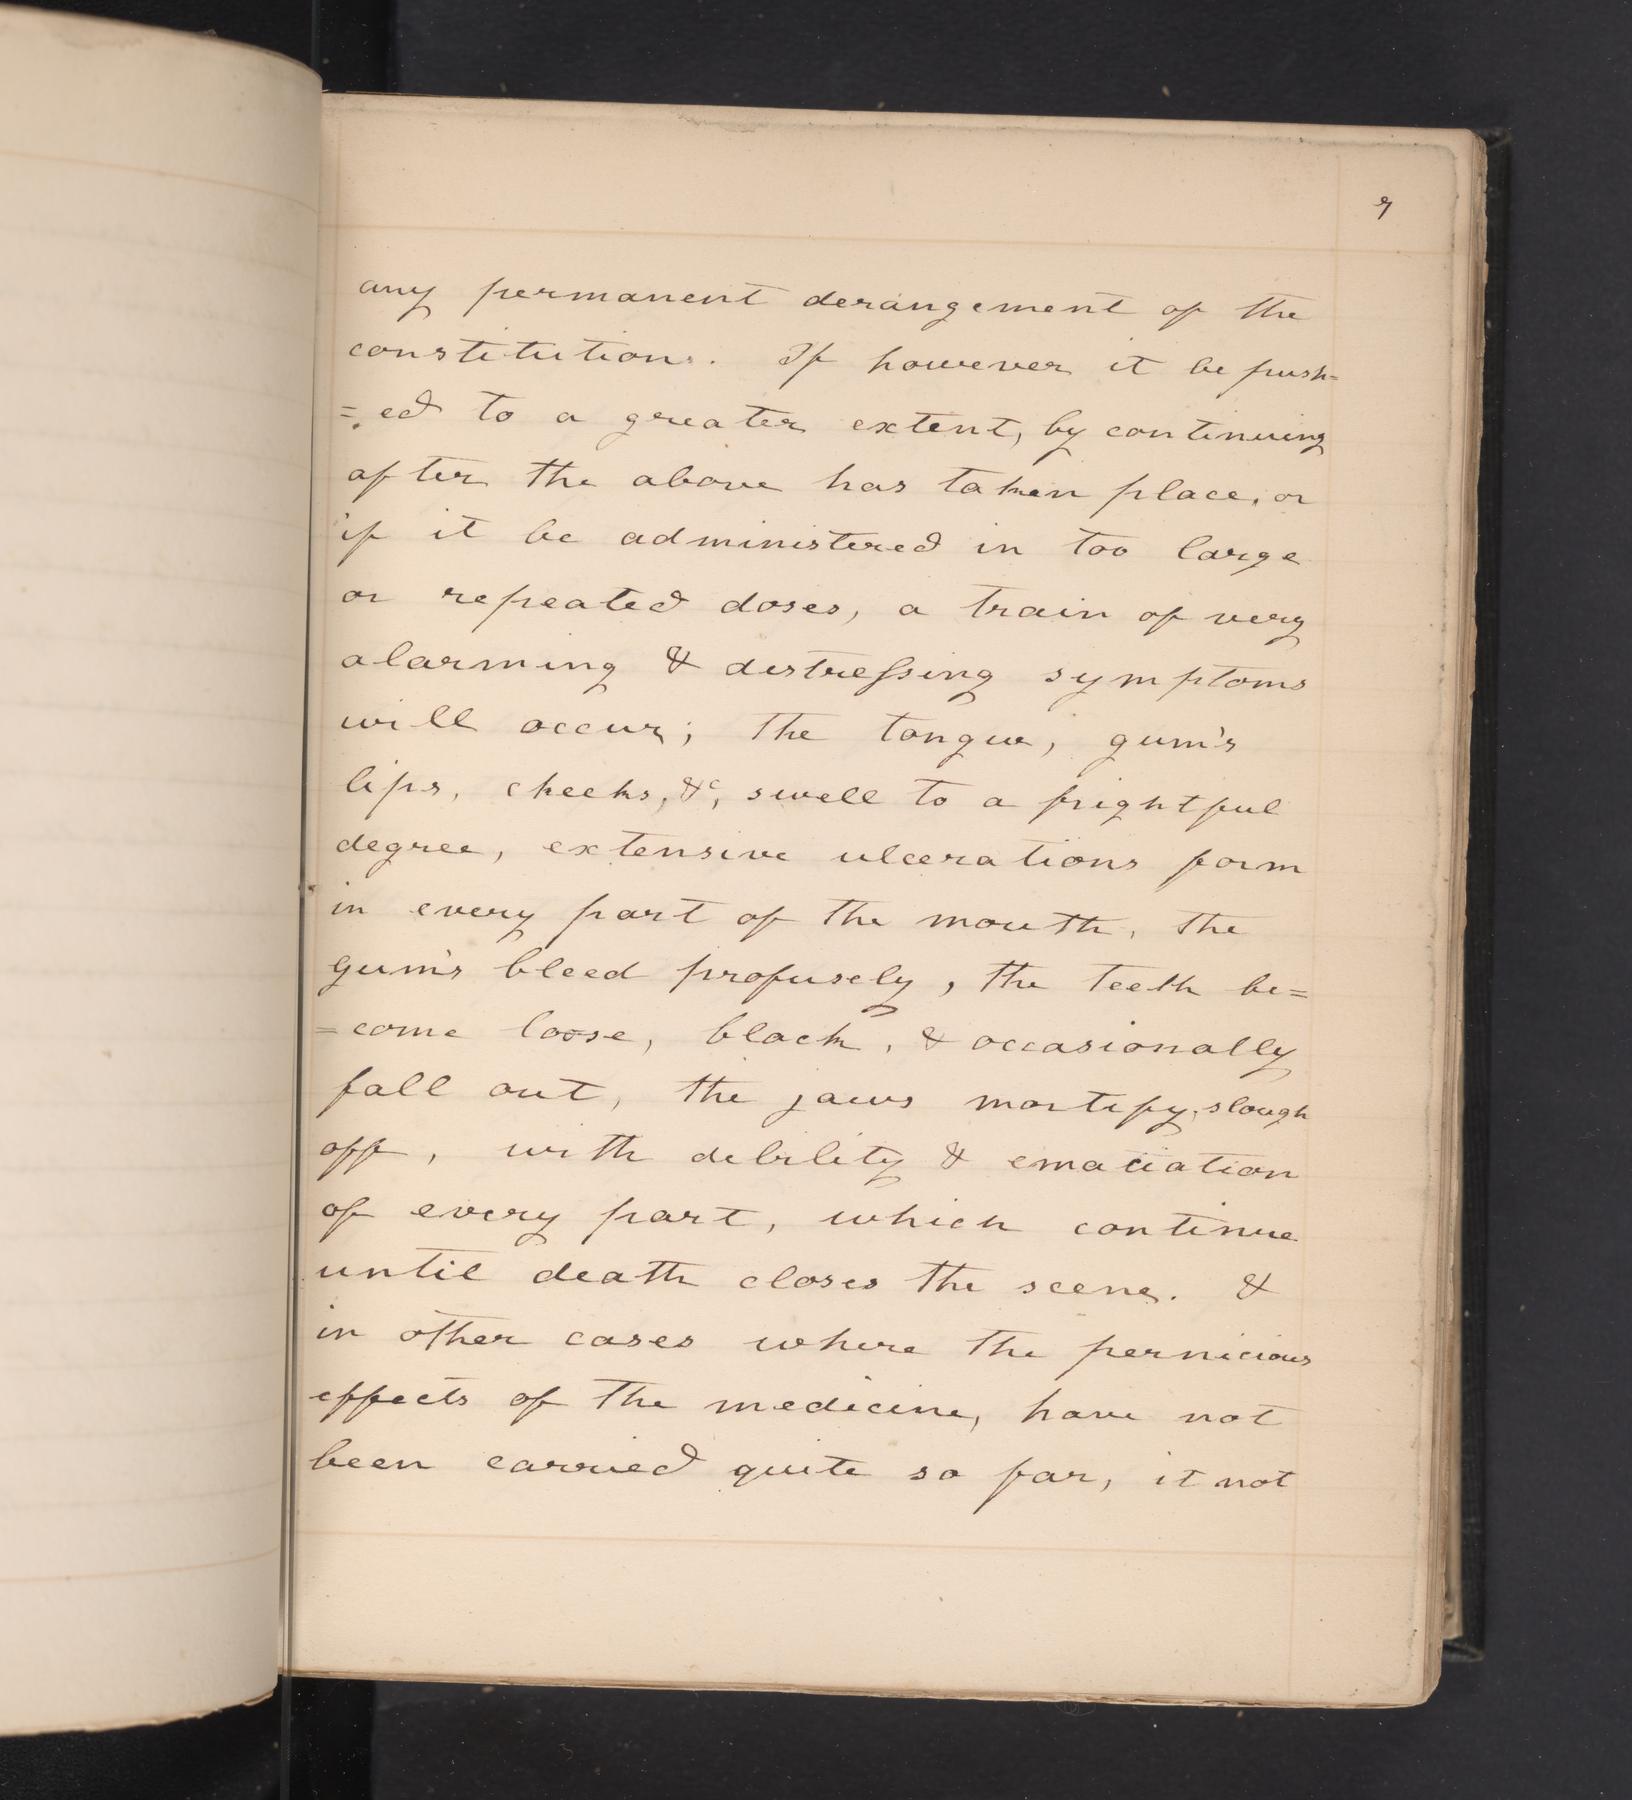 9
any permanent derangement of the
constitution. If however it be push=
=ed to a greater extent, by continuing
after the above has taken place, or
if it be administered in too large
or repeated doses, a train of very
alarming & distressing symptoms
will occur; the tongue, gum's
lips, cheeks, &c, swell to a frightful
degree, extensive ulcerations form
in every part of the mouth, the
gum's bleed profusely, the teeth be=
=come loose, black, & occasionally
fall out, the jaws mortify, slough
off, with debility & emaciation
of every part, which continue
until death closes the scene. &
in other cases where the pernicious
effects of the medicine, have not
been carried quite so far, it not